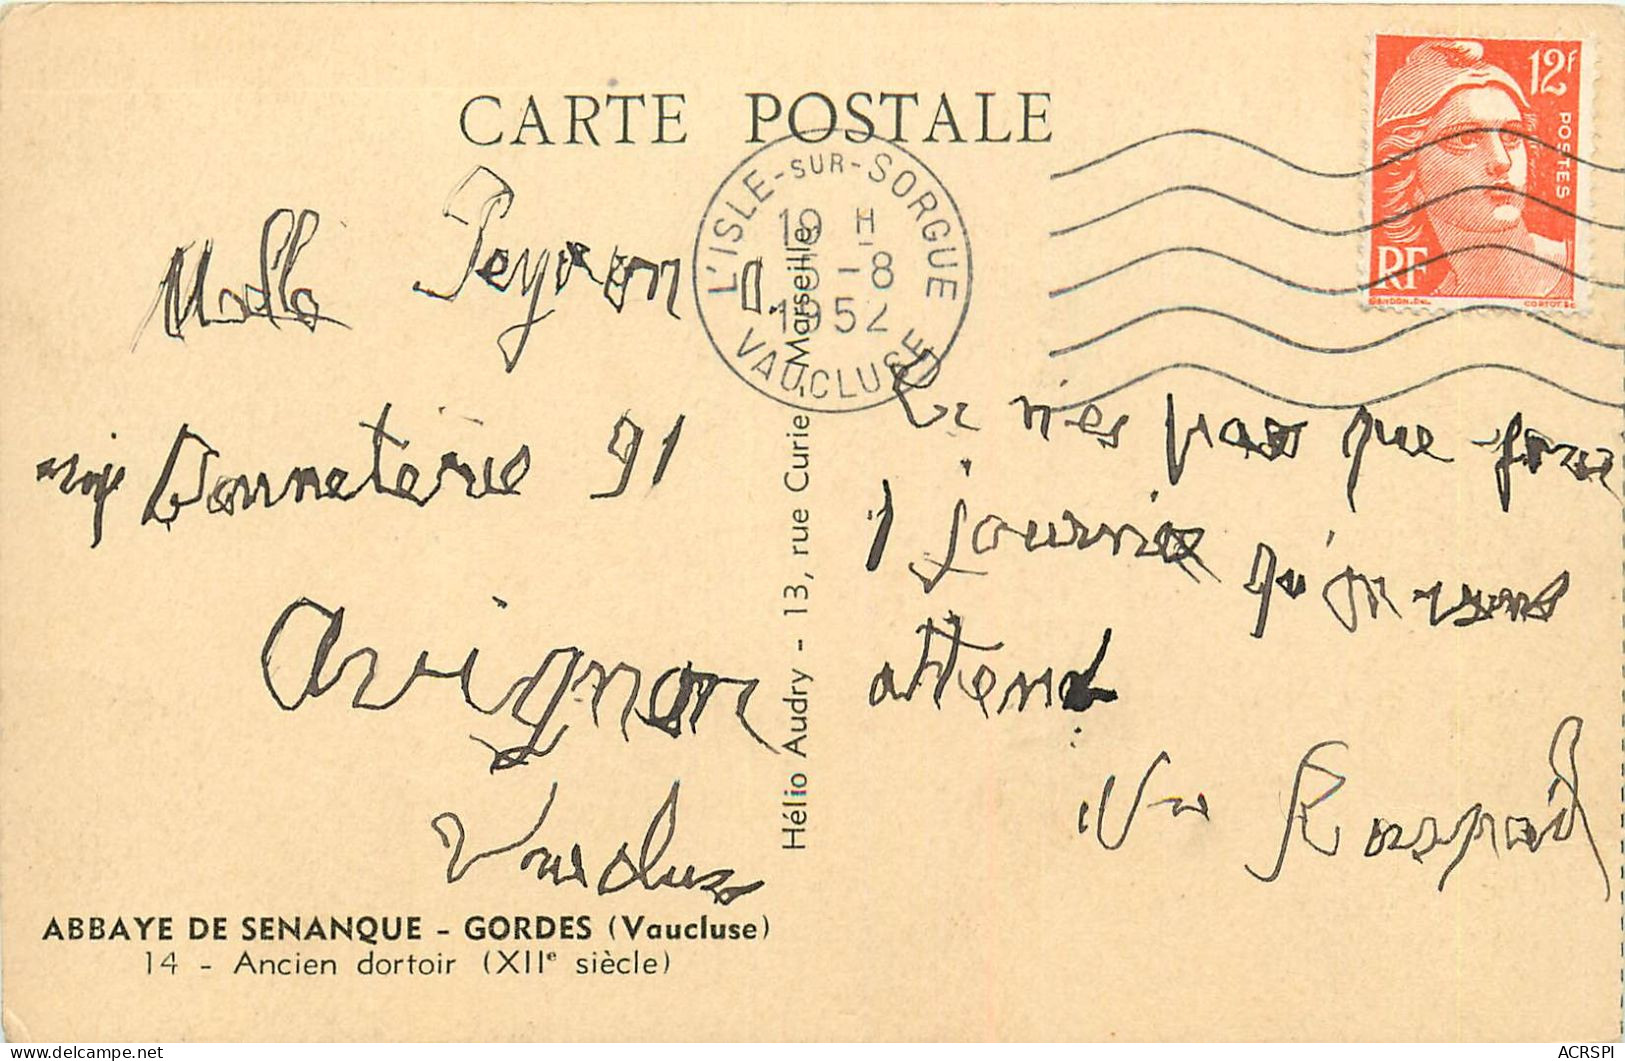 CARTE POSTALE
12F
POSTES
RF
GANDON.DEL
CORTOT SC
L'ISLE-SUR-SORGUE
19 H
-8
1952
VAUCLUSE
Melle Peyron
rue Bonneterie 91
Avignon
Vaucluse
Ce n'es pas que pour
1 journée qu'on vous
attend
Hélio Audry - 13, rue Curie, Marseille
ABBAYE DE SENANQUE - GORDES (Vaucluse)
14 - Ancien dortoir (XIIe siècle)
ACRSPI